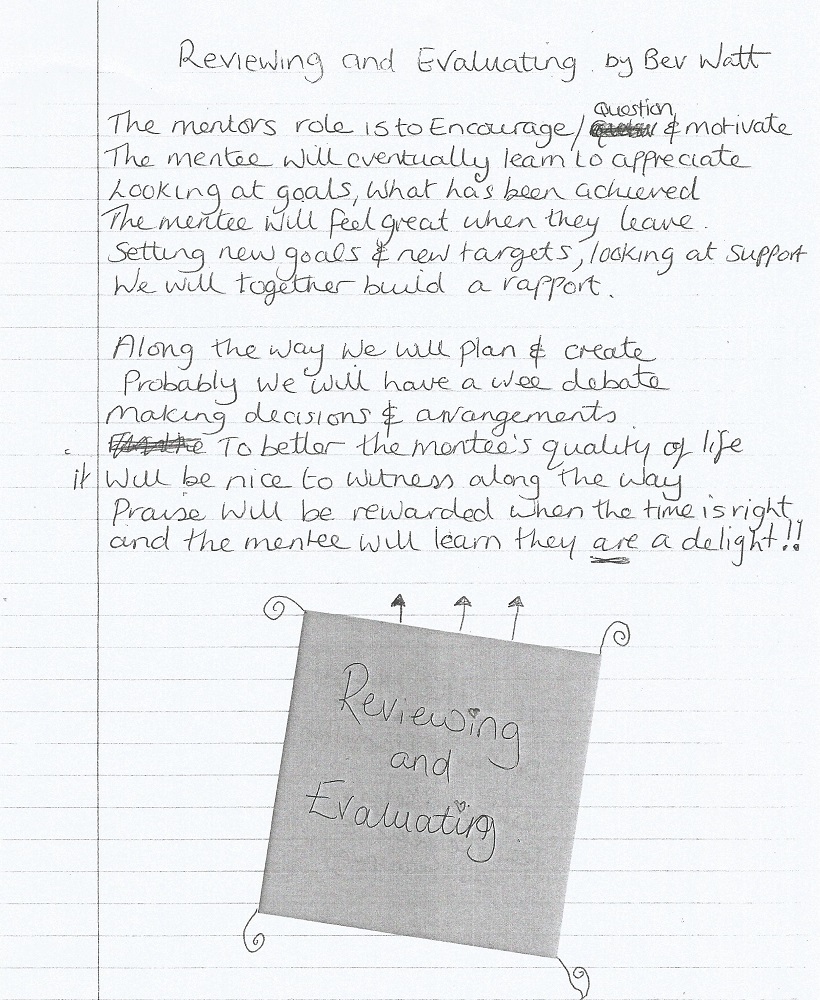 Reviewing and Evaluating by Bev Watt
The mentors role is to Encourage/ Question & motivate
The mentee will eventually learn to appreciate
Looking at goals, what has been achieved
The mentee will feel great when they leave.
Setting new goals & new targets, looking at support
We will together build a rapport.
Along the way we will plan & create
Probably we will have a wee debate
Making decisions & arrangements
To better the mentee's quality of life
it will be nice to witness along the way
Praise will be rewarded when the time is right
and the mentee will learn they are a delight!!
Reviewing
and
Evaluating.